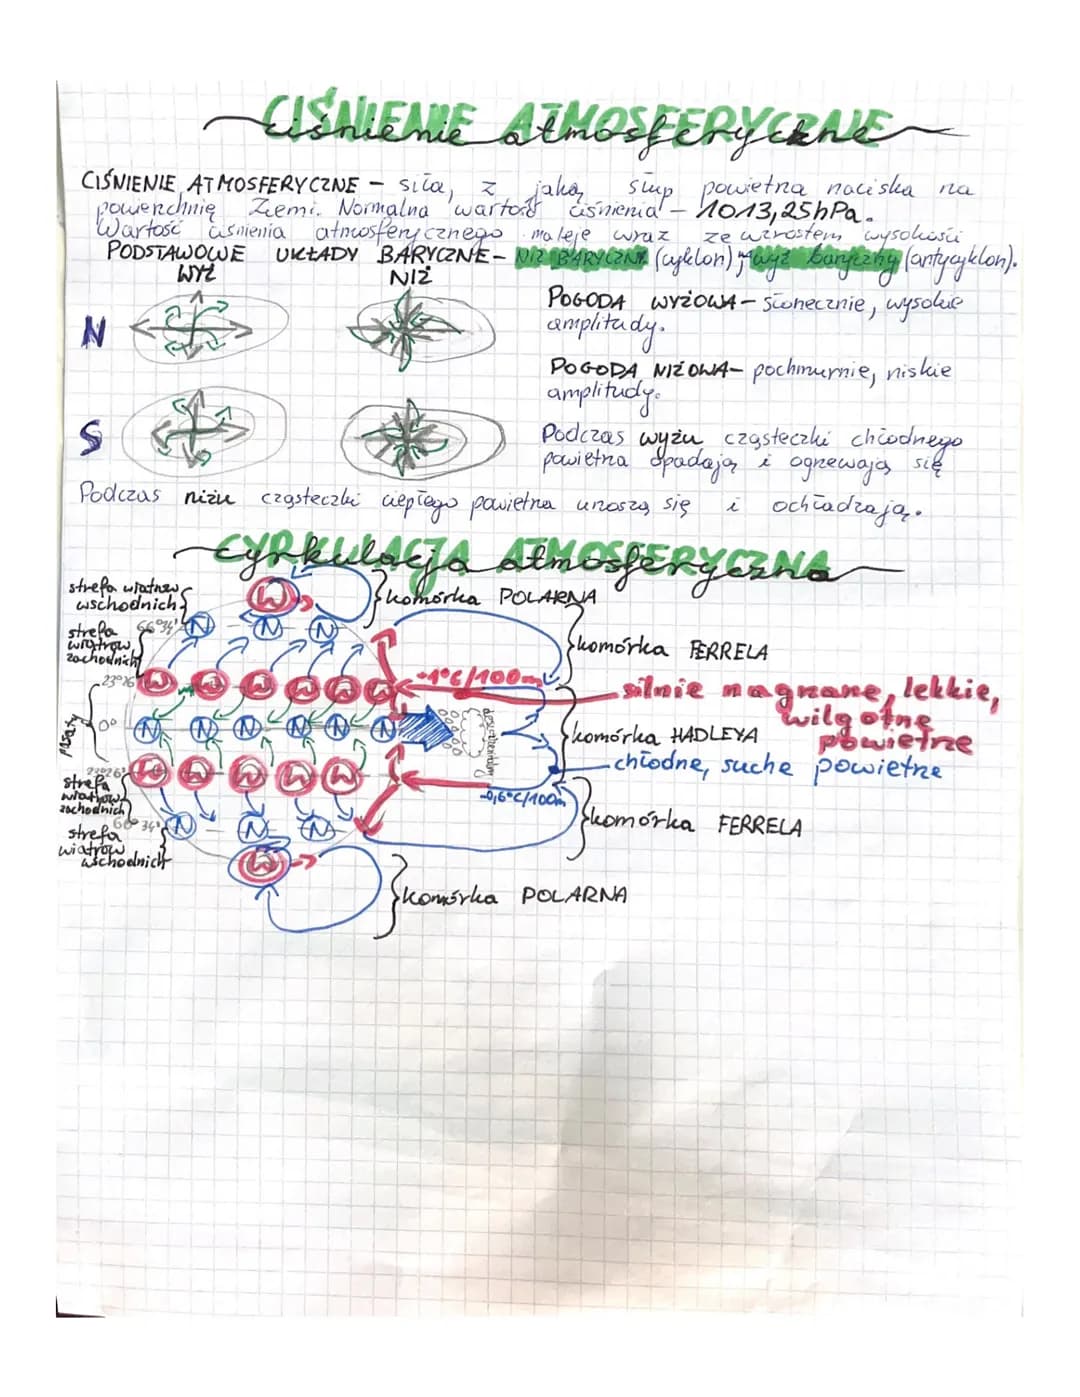 CIŚNIENIE ATMOSFERYCZNE
ciśnienie atmosferyczne
CIŚNIENIE ATMOSFERYCZNE – siła, z jaką słup powietrza naciska na
powierzchnię Ziemi. Normalna wartość ciśnienia – 1013,25hPa.
Wartość ciśnienia atmosferycznego maleje wraz ze wzrostem wysokości
PODSTAWOWE UKŁADY BARYCZNE – NIŻ BARYCZNY (cyklon); wyż baryczny (antycyklon).
WYŻ NIŻ
POGODA WYŻOWA – słonecznie, wysokie
amplitudy.
N
POGODA NIŻOWA – pochmurnie, niskie
amplitudy.
S
Podczas wyżu cząsteczki chłodnego
powietrza opadają i ogrzewają się
Podczas niżu cząsteczki ciepłego powietrza unoszą się i ochładzają.
CYRKULACJA ATMOSFERYCZNA
cyrkulacja atmosferyczna
strefa wiatrów
wschodnich
W
komórka POLARNA
66°34'
N N N
strefa
wiatrów
zachodnich
komórka FERRELA
-1°C/100m
23°26'
W W W W W W
silnie nagrzane, lekkie,
wilgotne
powietrze
pasaty
0°
N N N N N
komórka HADLEYA
chłodne, suche powietrze
23°26'
W W W W W
strefa
wiatrów
zachodnich
-0,6°C/100m
66°34'
N N N
komórka FERRELA
strefa
wiatrów
wschodnich
W
komórka POLARNA